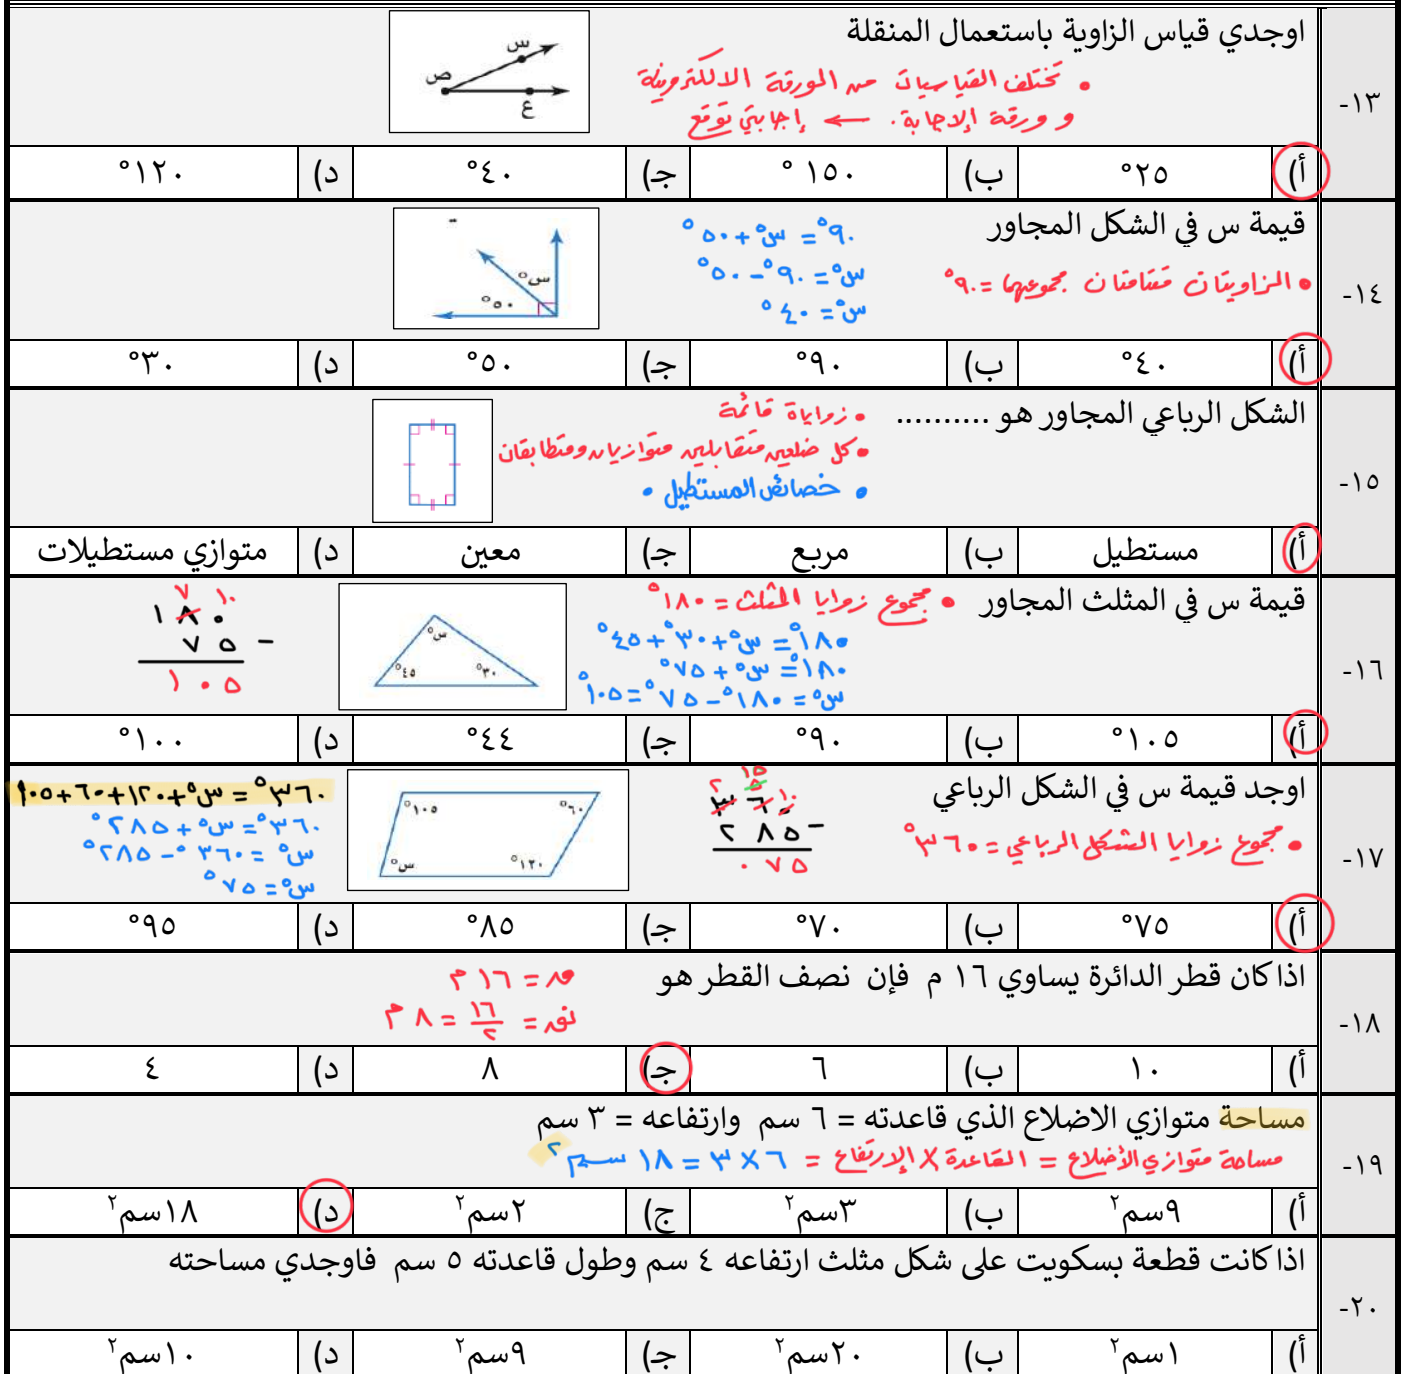 ١٣-
اوجدي قياس الزاوية باستعمال المنقلة
• تختلف القياسات من الورقة الالكترونية
و ورقة الإجابة. ← إجابتي توقع
س
ص
ع
أ) ٢٥° ب) ١٥٠° جـ) ٤٠° د) ١٢٠°
١٤-
قيمة س في الشكل المجاور
• الزاويتان متتامتان مجموعهما = ٩٠°
٩٠° = س° + ٥٠°
س° = ٩٠° - ٥٠°
س° = ٤٠°
س°
٥٠°
أ) ٤٠° ب) ٩٠° جـ) ٥٠° د) ٣٠°
١٥-
الشكل الرباعي المجاور هو ..........
• زواياة قائمة
• كل ضلعين متقابلين متوازيان ومتطابقان
• خصائص المستطيل •
أ) مستطيل ب) مربع جـ) معين د) متوازي مستطيلات
١٦-
قيمة س في المثلث المجاور • مجموع زوايا المثلث = ١٨٠°
١٨٠° = س° + ٣٠° + ٤٥°
١٨٠° = س° + ٧٥°
س° = ١٨٠° - ٧٥° = ١٠٥°
س°
٤٥° ٣٠°
٧ ١٠
١٨٠
٧٥ -
١٠٥
أ) ١٠٥° ب) ٩٠° جـ) ٤٤° د) ١٠٠°
١٧-
اوجد قيمة س في الشكل الرباعي
• مجموع زوايا الشكل الرباعي = ٣٦٠°
١٥
٢ ٥ ١٠
٣٦٠
٢٨٥ -
٠٧٥
١٠٥° ٦٠°
س° ١٢٠°
٣٦٠° = س° + ١٢٠ + ٦٠ + ١٠٥
٣٦٠° = س° + ٢٨٥°
س° = ٣٦٠° - ٢٨٥°
س° = ٧٥°
أ) ٧٥° ب) ٧٠° جـ) ٨٥° د) ٩٥°
١٨-
اذا كان قطر الدائرة يساوي ١٦ م فإن نصف القطر هو
ق = ١٦ م
نق = ١٦/٢ = ٨ م
أ) ١٠ ب) ٦ جـ) ٨ د) ٤
١٩-
مساحة متوازي الاضلاع الذي قاعدته = ٦ سم وارتفاعه = ٣ سم
مساحة متوازي الأضلاع = القاعدة × الإرتفاع = ٦ × ٣ = ١٨ سم٢
أ) ٩سم٢ ب) ٣سم٢ ج) ٢سم٢ د) ١٨سم٢
٢٠-
اذا كانت قطعة بسكويت على شكل مثلث ارتفاعه ٤ سم وطول قاعدته ٥ سم فاوجدي مساحته
أ) ١سم٢ ب) ٢٠سم٢ جـ) ٩سم٢ د) ١٠سم٢